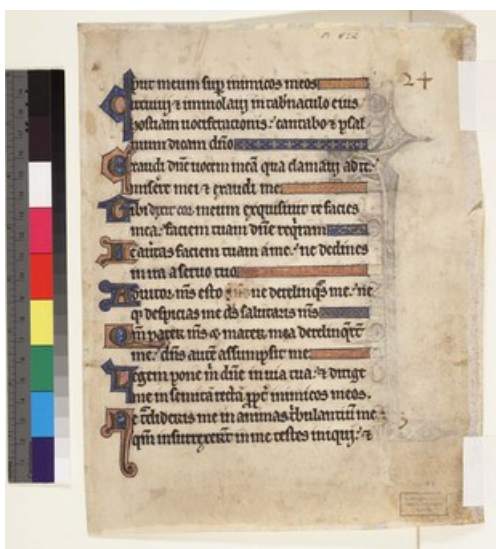 24
put meum sup inimicos meos
Circuivi & immolavi in tabnaculo eius
hostiam vociferationis: cantabo & psal
mum dicam dno
Exaudi dne vocem meā qua clamavi ad te:
miserere mei & exaudi me
Tibi dixit cor meum exquisivit te facies
mea: faciem tuam dne reqram
Ne avtas faciem tuam a me: ne declines
in ira a servo tuo
Adiutor ms esto ne derelinqs me: ne
qȝ despicias me ds salutaris ms
Qm pater ms & mater mea derelinqrt
me: dns autē assumpsit me
Legem pone m dne in via tua: & dirige
me in semitā rectā ppt inimicos meos.
Ne tdideris me in animas tbulantiū me
qm insurrexert in me testes iniqui: &